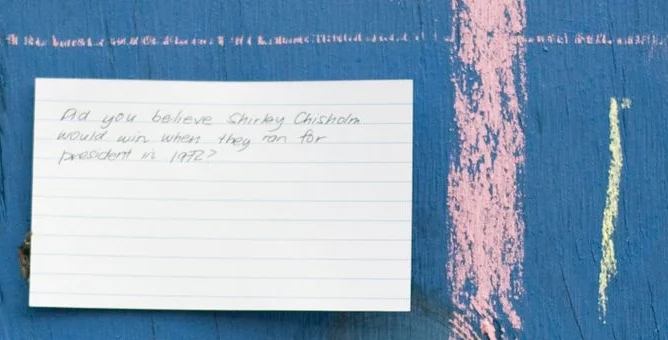 Did you believe Shirley Chisholm
would win when they ran for
president in 1972?